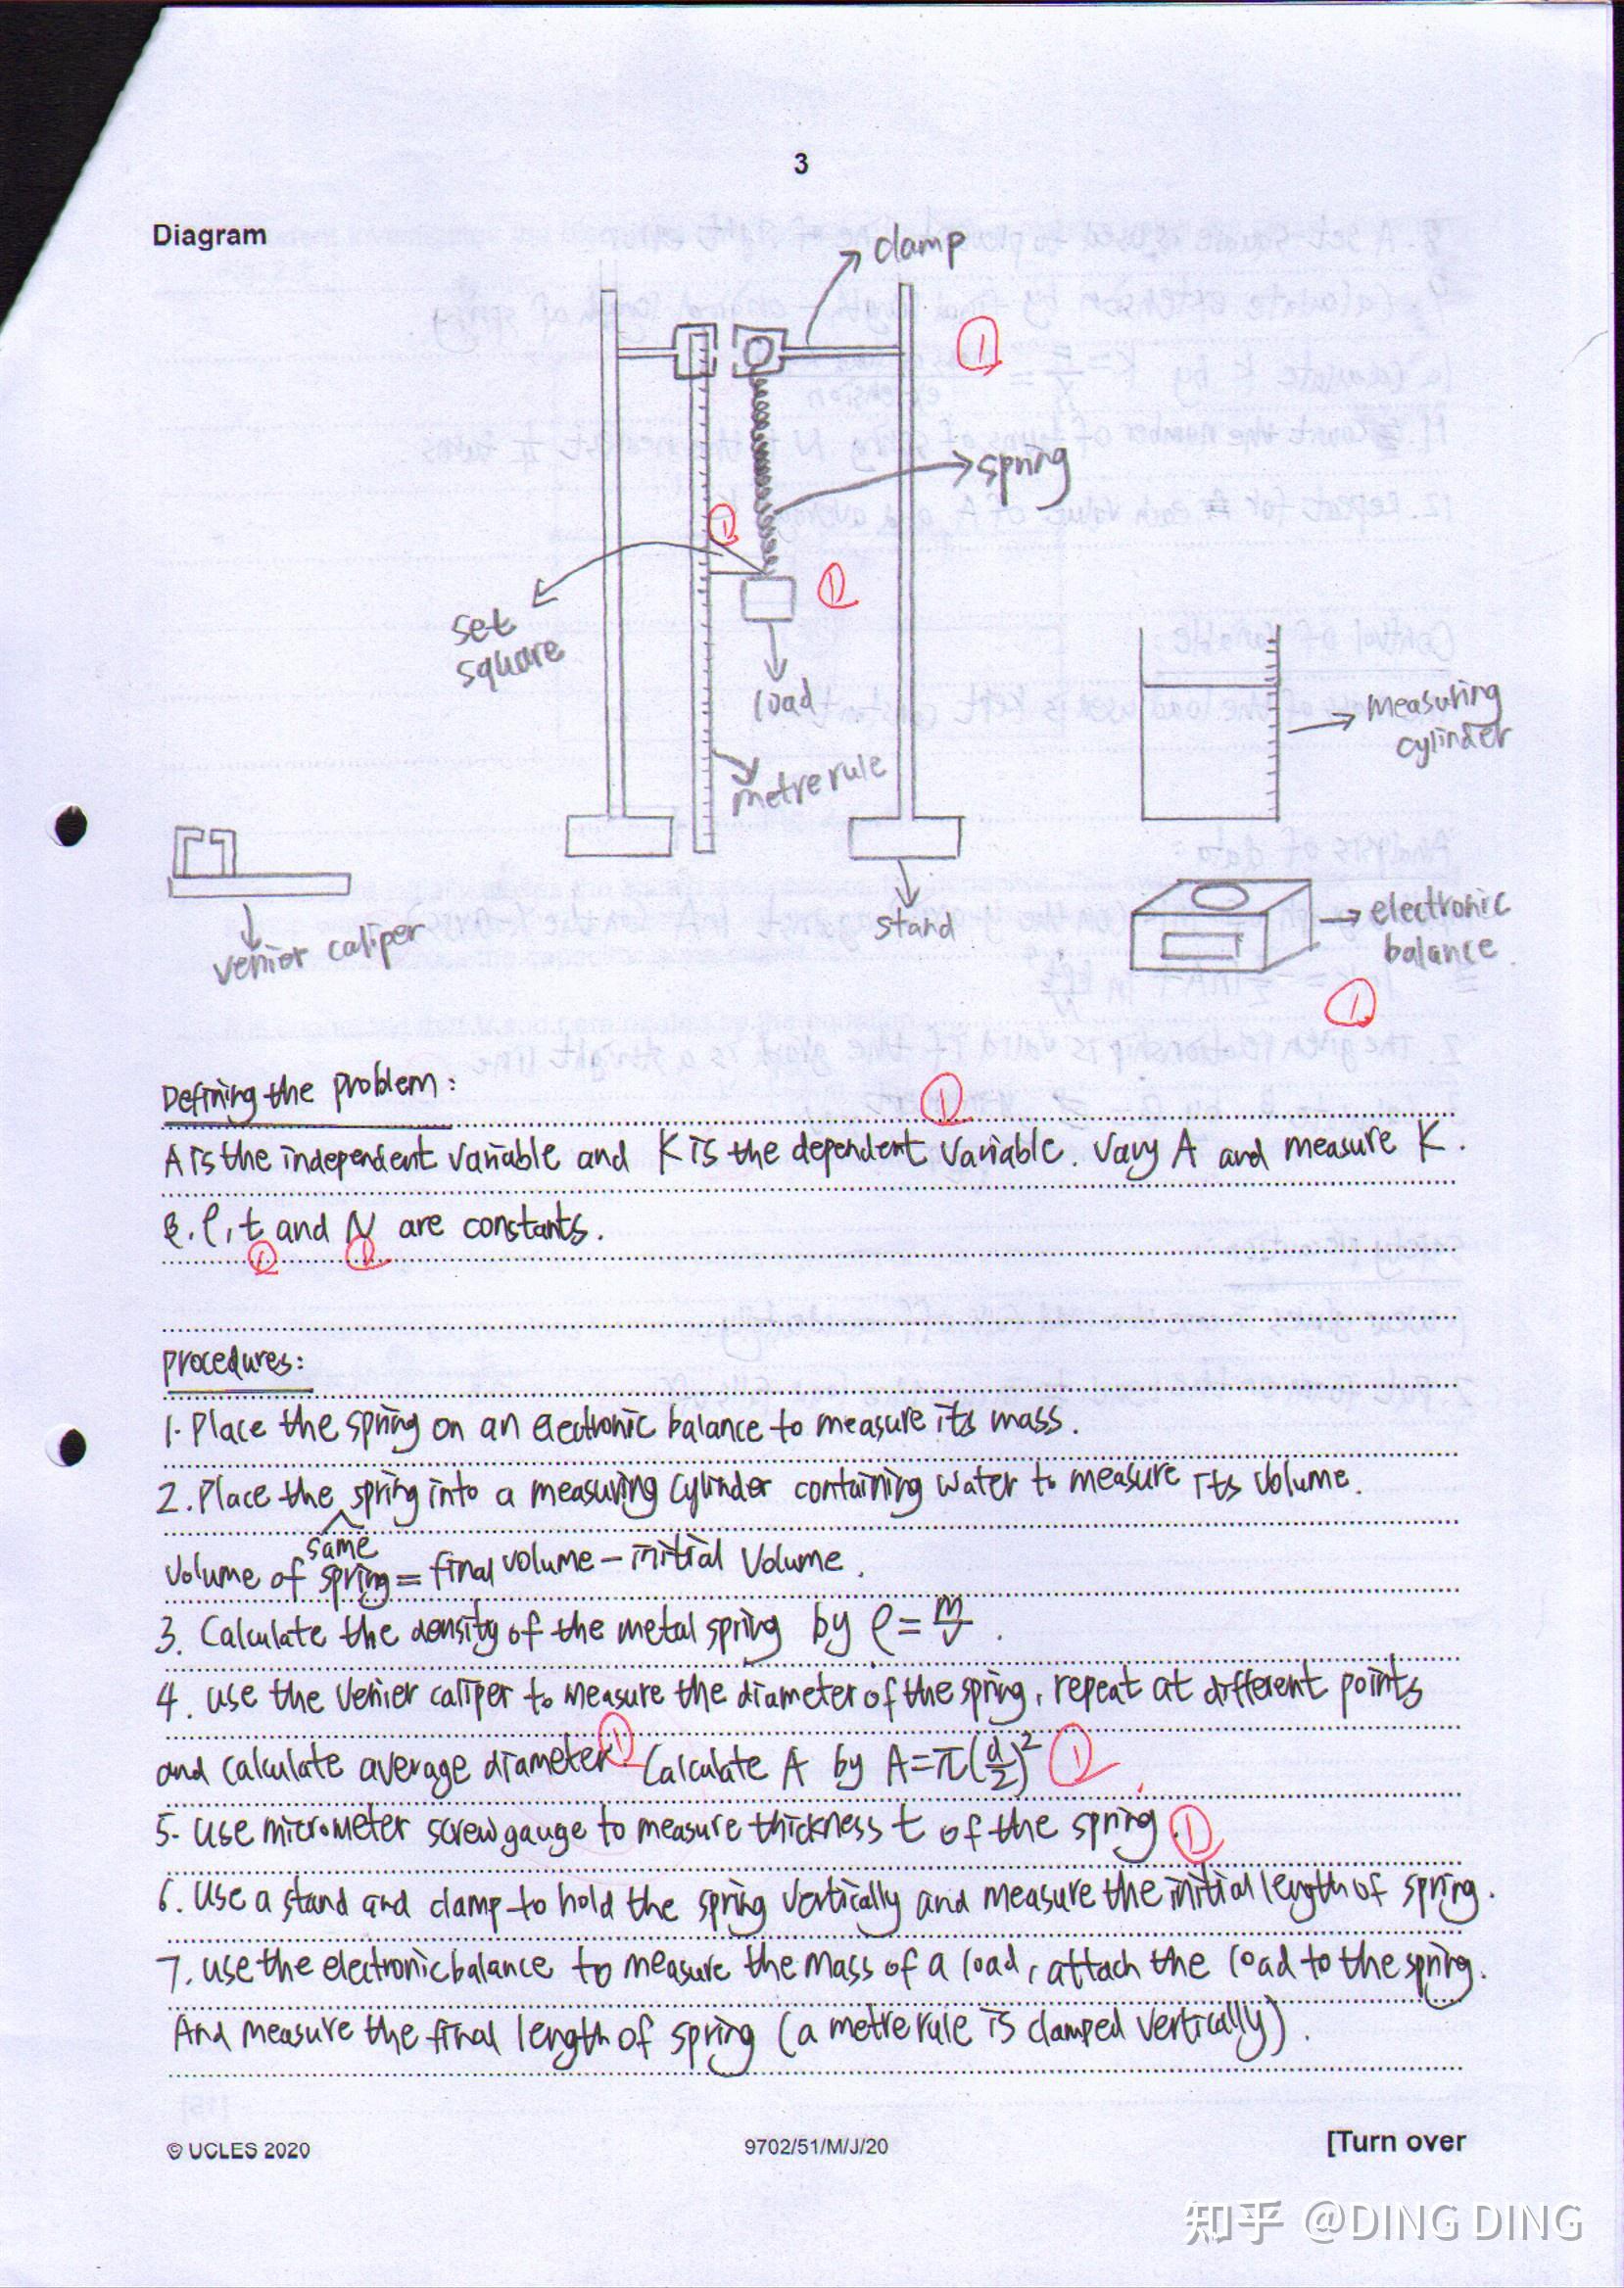 3
Diagram
clamp
①
spring
①
①
set
square
load
metre rule
measuring
cylinder
venier caliper
stand
electronic
balance
①
Defining the problem:
①
A is the independent variable and K is the dependent variable. Vary A and measure K.
ρ, t and N are constants.
① ①
procedures:
1. Place the spring on an electronic balance to measure its mass.
2. Place the spring into a measuring cylinder containing water to measure its volume.
same
Volume of spring = final volume - initial volume.
3. Calculate the density of the metal spring by ρ = m/V.
4. Use the venier caliper to measure the diameter of the spring, repeat at different points
and calculate average diameter. ① Calculate A by A = π(d/2)² ①
5. Use micrometer screw gauge to measure thickness t of the spring. ①
6. Use a stand and clamp to hold the spring vertically and measure the initial length of spring.
7. Use the electronic balance to measure the mass of a load, attach the load to the spring.
And measure the final length of spring (a metre rule is clamped vertically).
© UCLES 2020
9702/51/M/J/20
[Turn over
知乎 @DING DING